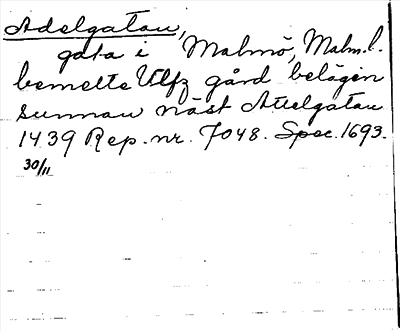 Adelgatan,
gata i Malmö, Malm.l.
bemelte Ulfz gård belägin
sunnan näst Attelgatan
1439 Rep. nr. 7048. Spec. 1693.
30/11